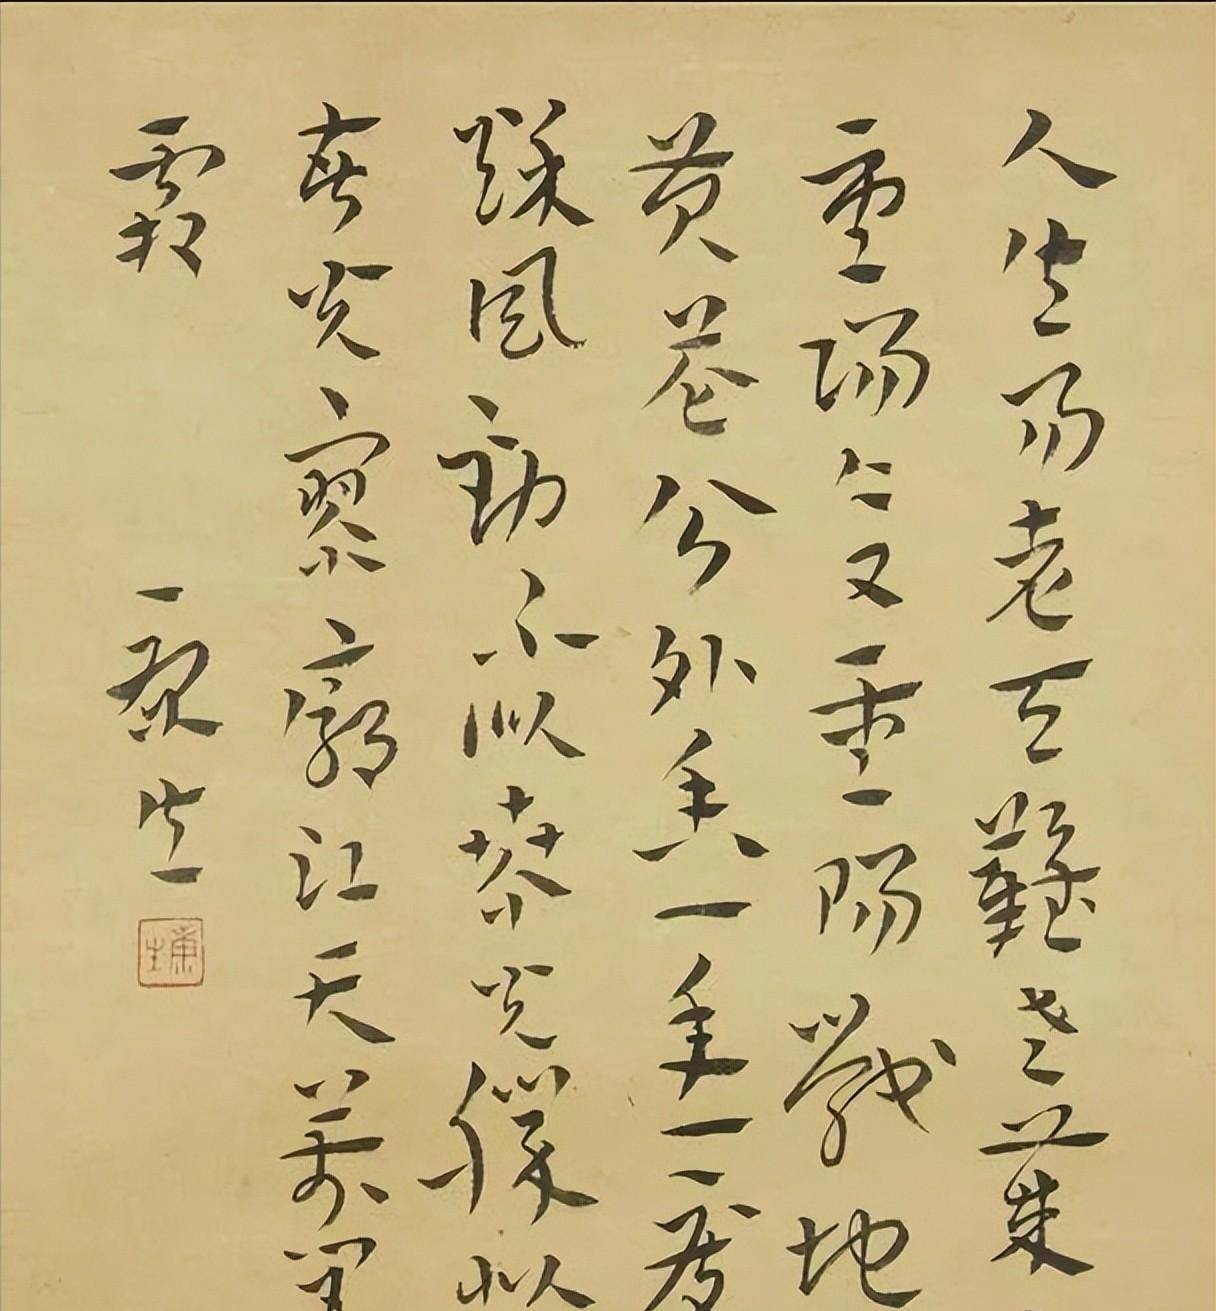 人生易老天難老歲
重陽今又重陽戰地
黃花分外香一年一度
秌風勁不似春光勝似
春光寥廓江天萬里
霜
康生
康生